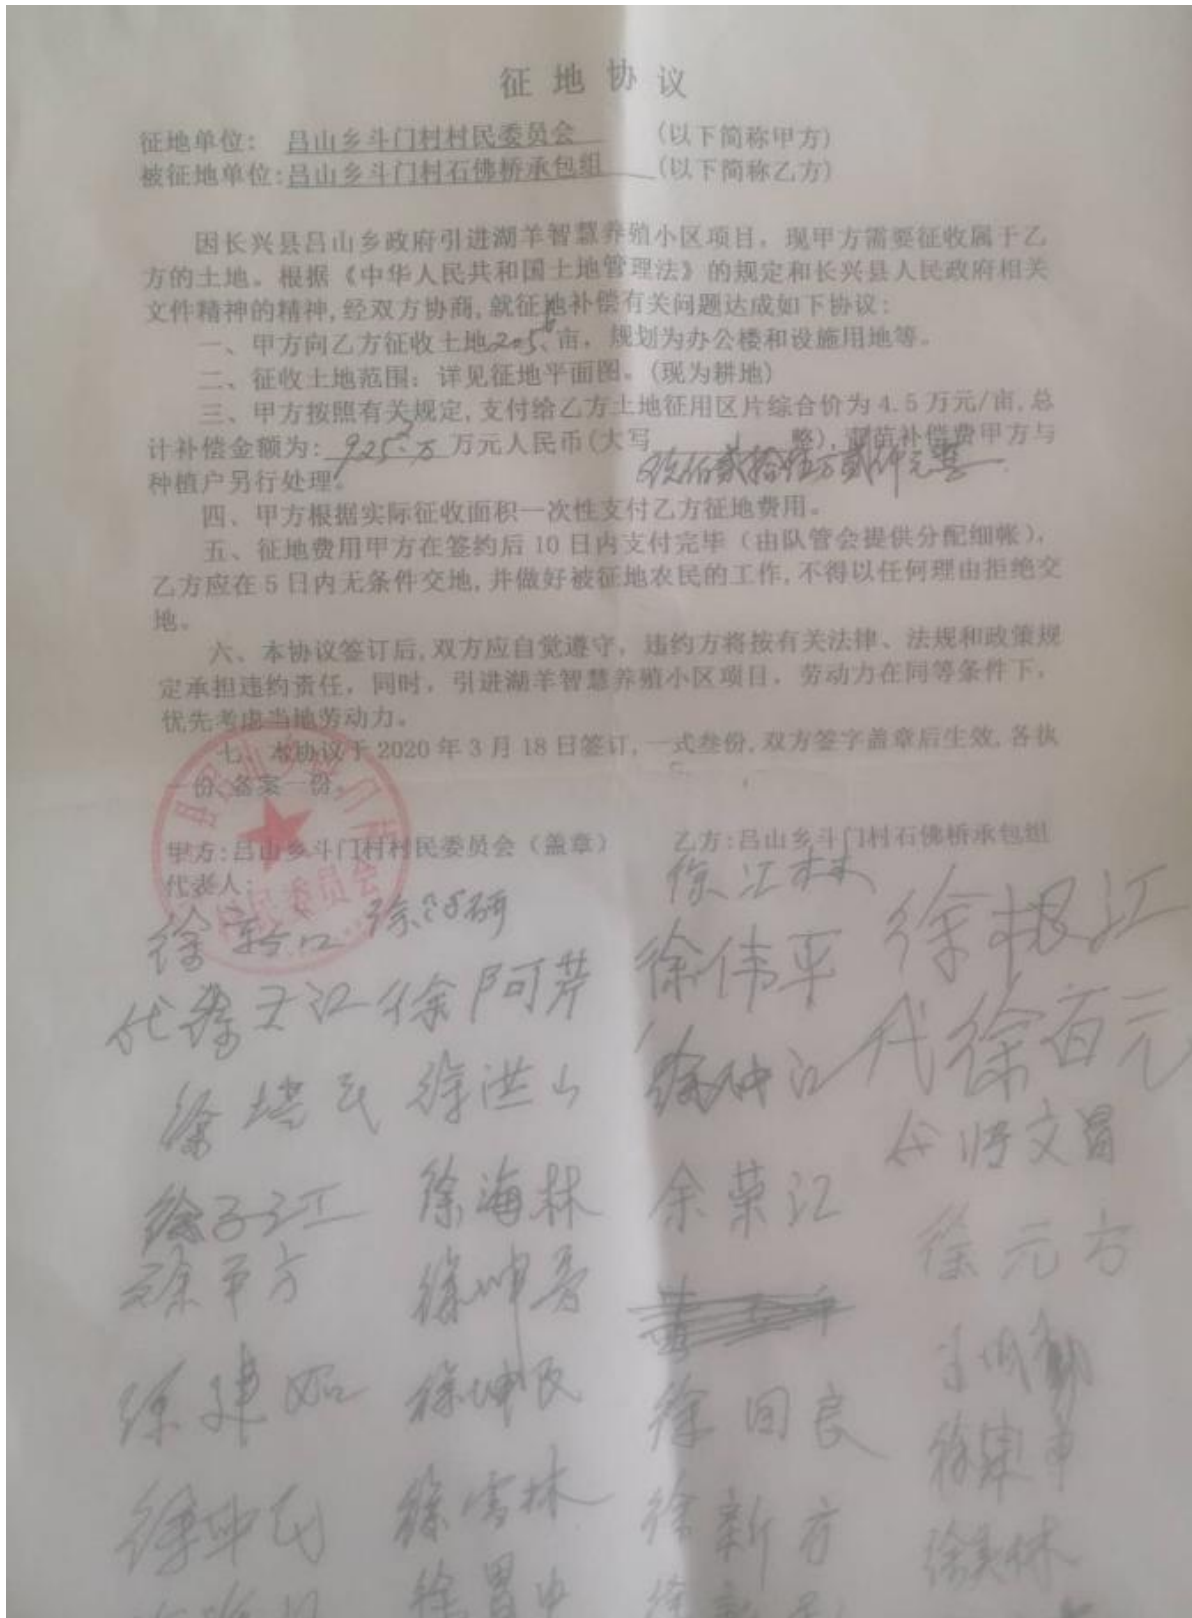 征地协议
征地单位: 吕山乡斗门村村民委员会 (以下简称甲方)
被征地单位:吕山乡斗门村石佛桥承包组 (以下简称乙方)
因长兴县吕山乡政府引进湖羊智慧养殖小区项目，现甲方需要征收属于乙
方的土地。根据《中华人民共和国土地管理法》的规定和长兴县人民政府相关
文件精神的精神,经双方协商,就征地补偿有关问题达成如下协议:
一、甲方向乙方征收土地205.6亩，规划为办公楼和设施用地等。
二、征收土地范围：详见征地平面图。(现为耕地)
三、甲方按照有关规定,支付给乙方土地征用区片综合价为4.5万元/亩,总
计补偿金额为: 925.2万 万元人民币(大写 玖佰贰拾伍万贰仟元整 整),青苗补偿费甲方与
种植户另行处理。
四、甲方根据实际征收面积一次性支付乙方征地费用。
五、征地费用甲方在签约后10日内支付完毕（由队管会提供分配细帐），
乙方应在5日内无条件交地,并做好被征地农民的工作,不得以任何理由拒绝交
地。
六、本协议签订后,双方应自觉遵守，违约方将按有关法律、法规和政策规
定承担违约责任，同时，引进湖羊智慧养殖小区项目，劳动力在同等条件下，
优先考虑当地劳动力。
七、本协议于2020年3月18日签订,一式叁份,双方签字盖章后生效,各执
一份,备案一份。
甲方:吕山乡斗门村村民委员会（盖章） 乙方:吕山乡斗门村石佛桥承包组
代表人:
徐江林
徐伟平 徐根江
徐阿芹 代徐百元
徐洪山 徐仲江
徐海林 余荣江
徐元方
徐平方 徐坤
徐建 徐坤民 徐回良
徐坤民 徐雪林 徐新方 徐美林